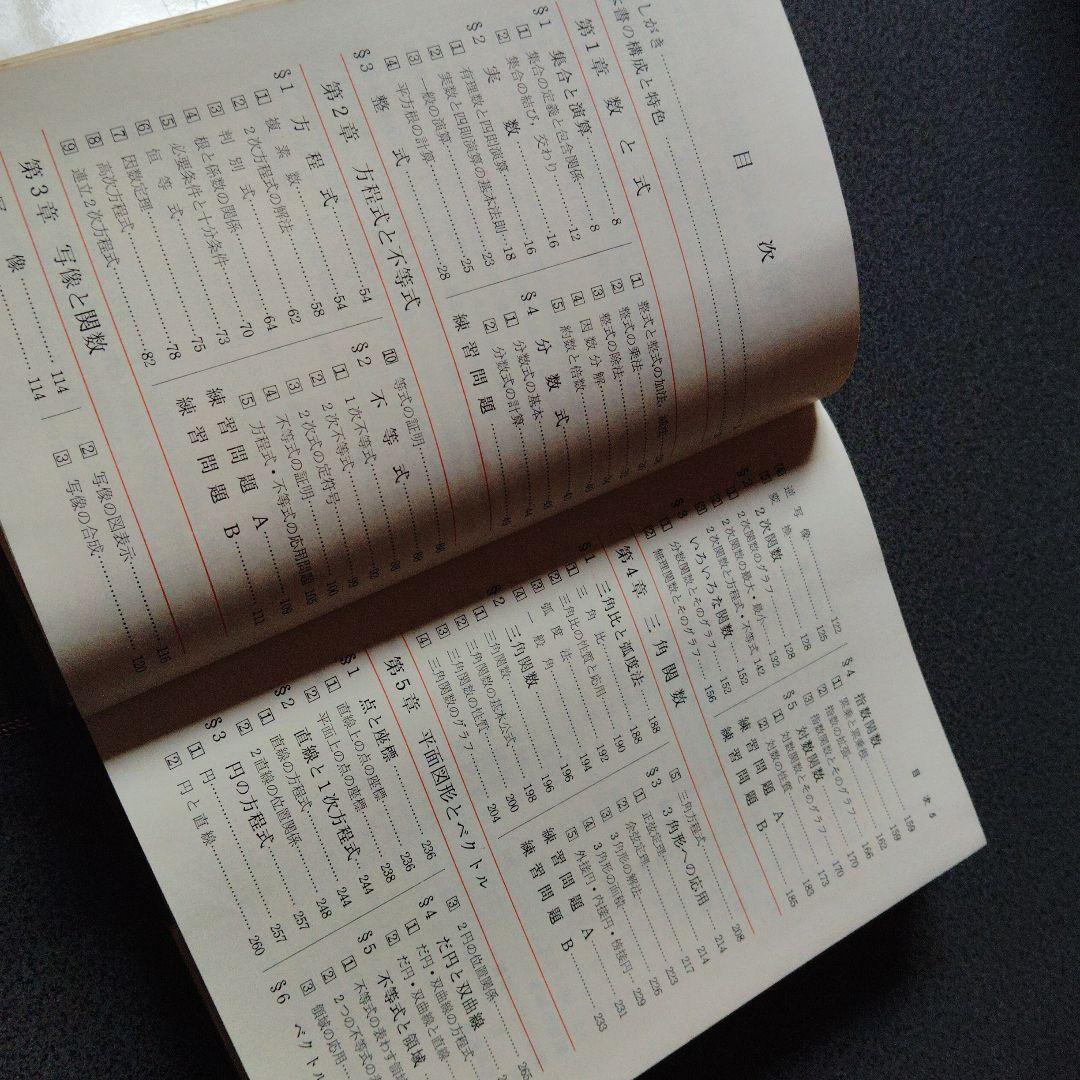 目 次
しがき
本書の構成と特色
第1章 数と式
§1 集合と演算 8
1 集合の定義と包含関係 8
2 集合の結び，交わり 12
§2 実数 16
1 有理数と四則演算 16
2 実数と四則演算の基本法則 18
3 一般の演算 23
4 平方根の計算 25
§3 整式 28
1 整式と整式の加法，減法
2 整式の乗法
3 整式の除法
4 因数分解
5 約数と倍数
§4 分数式
1 分数式の基本
2 分数式の計算
練習問題
第2章 方程式と不等式
§1 方程式 54
1 複素数 54
2 2次方程式の解法 58
3 判別式 62
4 根と係数の関係 64
5 必要条件と十分条件 70
6 恒等式 73
7 因数定理 75
8 高次方程式 78
9 連立2次方程式 82
10 等式の証明
§2 不等式
1 1次不等式
2 2次不等式
3 2次式の定符号
4 不等式の証明
5 方程式・不等式の応用問題
練習問題 A
練習問題 B 111
第3章 写像と関数
写像 114
114
2 写像の図表示 116
3 写像の合成 120
目 次 5
4 逆写像 122
5 変換 126
§2 2次関数 128
1 2次関数のグラフ 128
2 2次関数の最大・最小 132
3 2次関数と方程式・不等式 142
§3 いろいろな関数 152
1 分数関数とそのグラフ 152
2 無理関数とそのグラフ 156
§4 指数関数 159
1 累乗と累乗根 159
2 指数の拡張 162
3 指数関数とそのグラフ 166
§5 対数関数 170
1 対数関数とそのグラフ 170
2 対数の性質 173
練習問題 A 183
練習問題 B 185
第4章 三角関数
§1 三角比と弧度法 188
1 三角比 188
2 三角比の性質と応用 190
3 弧度法 192
4 一般角 194
§2 三角関数 196
1 三角関数 196
2 三角関数の基本公式 198
3 三角関数の性質 200
4 三角関数のグラフ 204
5 三角方程式 208
§3 3角形への応用 214
1 正弦定理 214
2 余弦定理 217
3 3角形の解法 223
4 3角形の面積 226
5 外接円・内接円・傍接円 229
練習問題 A 231
練習問題 B 233
第5章 平面図形とベクトル
§1 点と座標 236
1 直線上の点の座標 236
2 平面上の点の座標 238
§2 直線と1次方程式 244
1 直線の方程式 244
2 2直線の位置関係 248
§3 円の方程式 257
1 円 257
2 円と直線 260
3 2円の位置関係 265
§4 だ円と双曲線
1 だ円・双曲線の方程式
2 だ円・双曲線と直線
§5 不等式と領域
1 不等式の表わす領域
2 2つの不等式の
3 領域の応用
§6 ベクトル